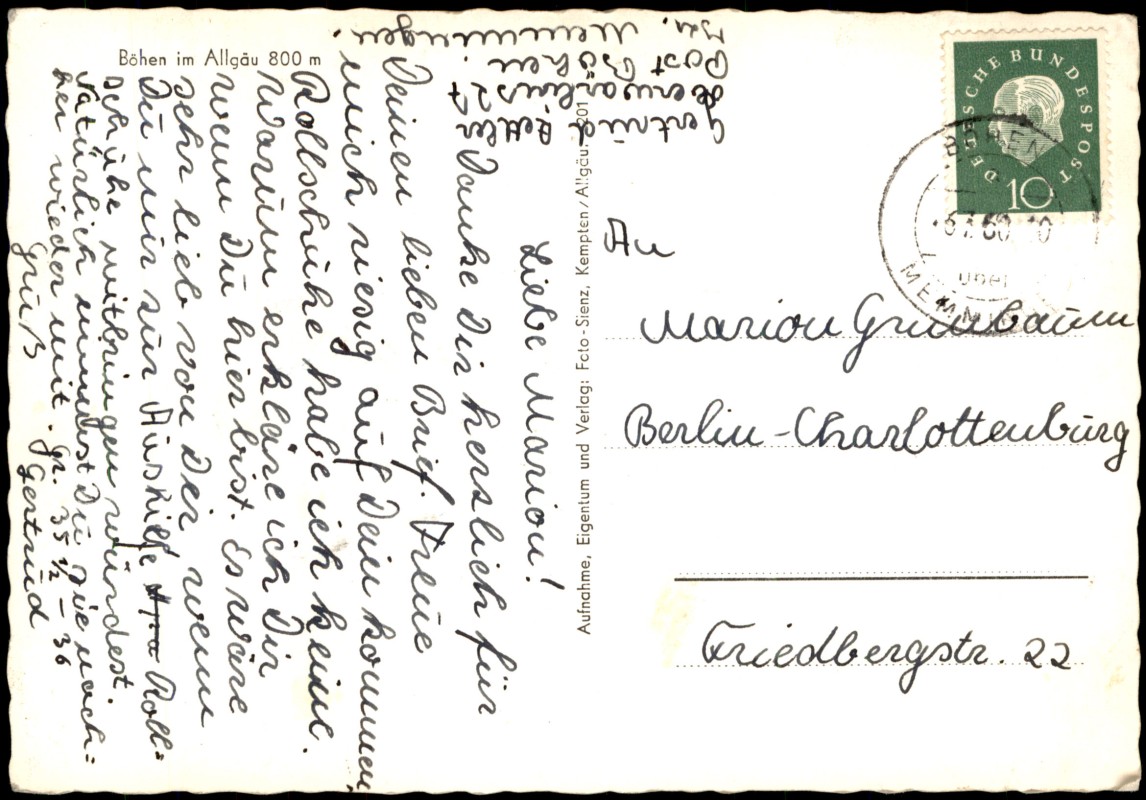 Böhen im Allgäu 800 m
Gertrud
Post Böhen.
Kr. Memmingen.
Liebe Marion!
Danke Dir herslich für
Deinen lieben Brief. Freue
mich riesig auf Dein kommen,
Rollschuhe habe ich keine.
Warum erkläre ich Dir
wenn Du hier bist. Es wäre
sehr lieb von Dir wenn
Du mir zur Aushilfe Roll=
schuhe mitbringen würdest.
Natürlich nimmst Du sie nach=
her wieder mit. Gr. 35 1/2 – 36
Gruß
Gertrud
Aufnahme, Eigentum und Verlag: Foto-Sienz, Kempten/Allgäu. 201
DEUTSCHE BUNDESPOST
10
BÖHEN
-6.7.60.-10
über
MEMMINGEN
An
Marion Grunbaum
Berlin-Charlottenburg
Friedbergstr. 22